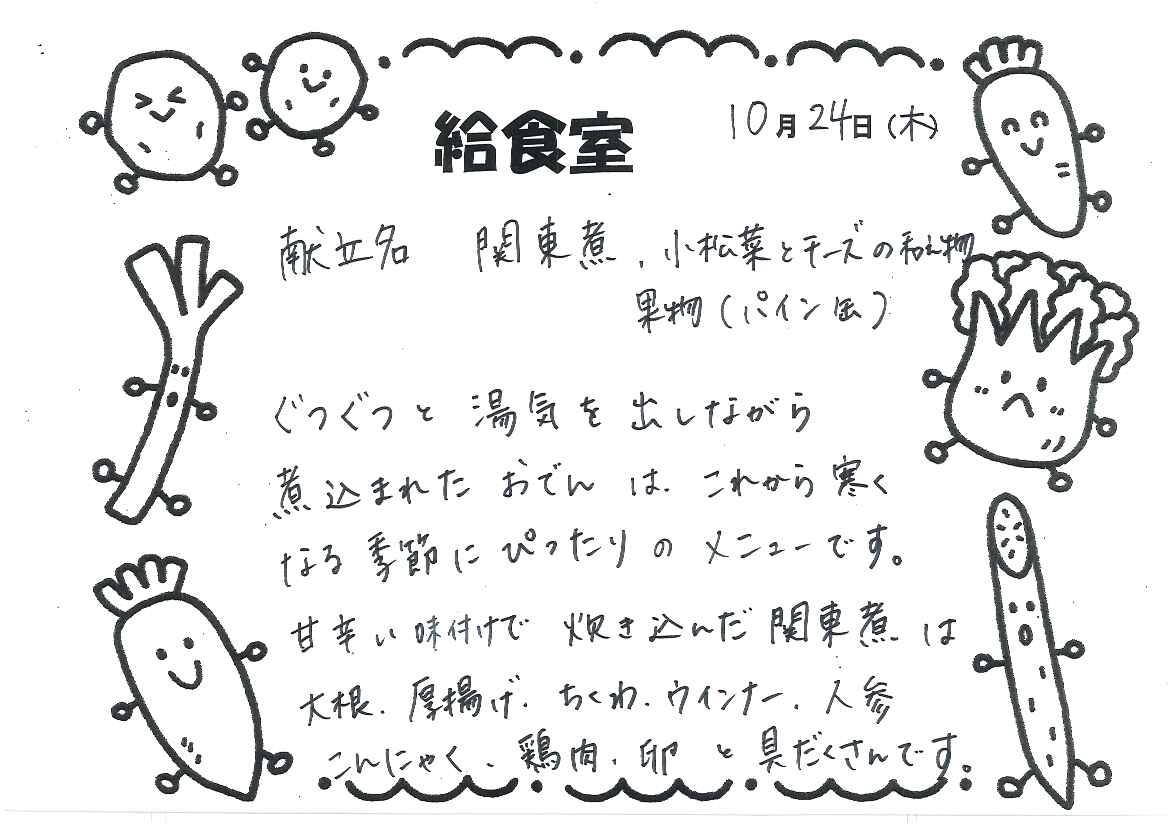 給食室
10月24日(木)
献立名 関東煮、小松菜とチーズの和え物
果物(パイン缶)
ぐつぐつと湯気を出しながら
煮込まれたおでんは、これから寒く
なる季節にぴったりのメニューです。
甘辛い味付けで炊き込んだ関東煮は
大根、厚揚げ、ちくわ、ウインナー、人参
こんにゃく、鶏肉、卵と具だくさんです。